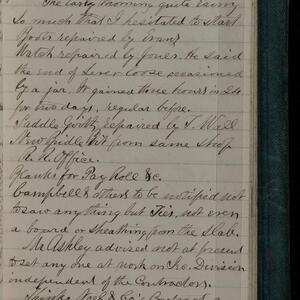 The early morning quite rainy
so much that I hesitated to start
Boots repaired by Evans
Watch repaired by Jones. He said
the end of Lever loose occasioned
by a jar. It gained three hours in 24
for two days, regular before.
Saddle Girth repaired by T. Wall
New Bridle bit from same Shop
R. R. Office.
Blanks for Pay Roll &c.
Campbell & others to be notified not
to saw any thing but Ties, not even
a board or sheathing from the slab.
Mr Ashley advised not at present
to set any one at work on the Division
independent of the Contractors.